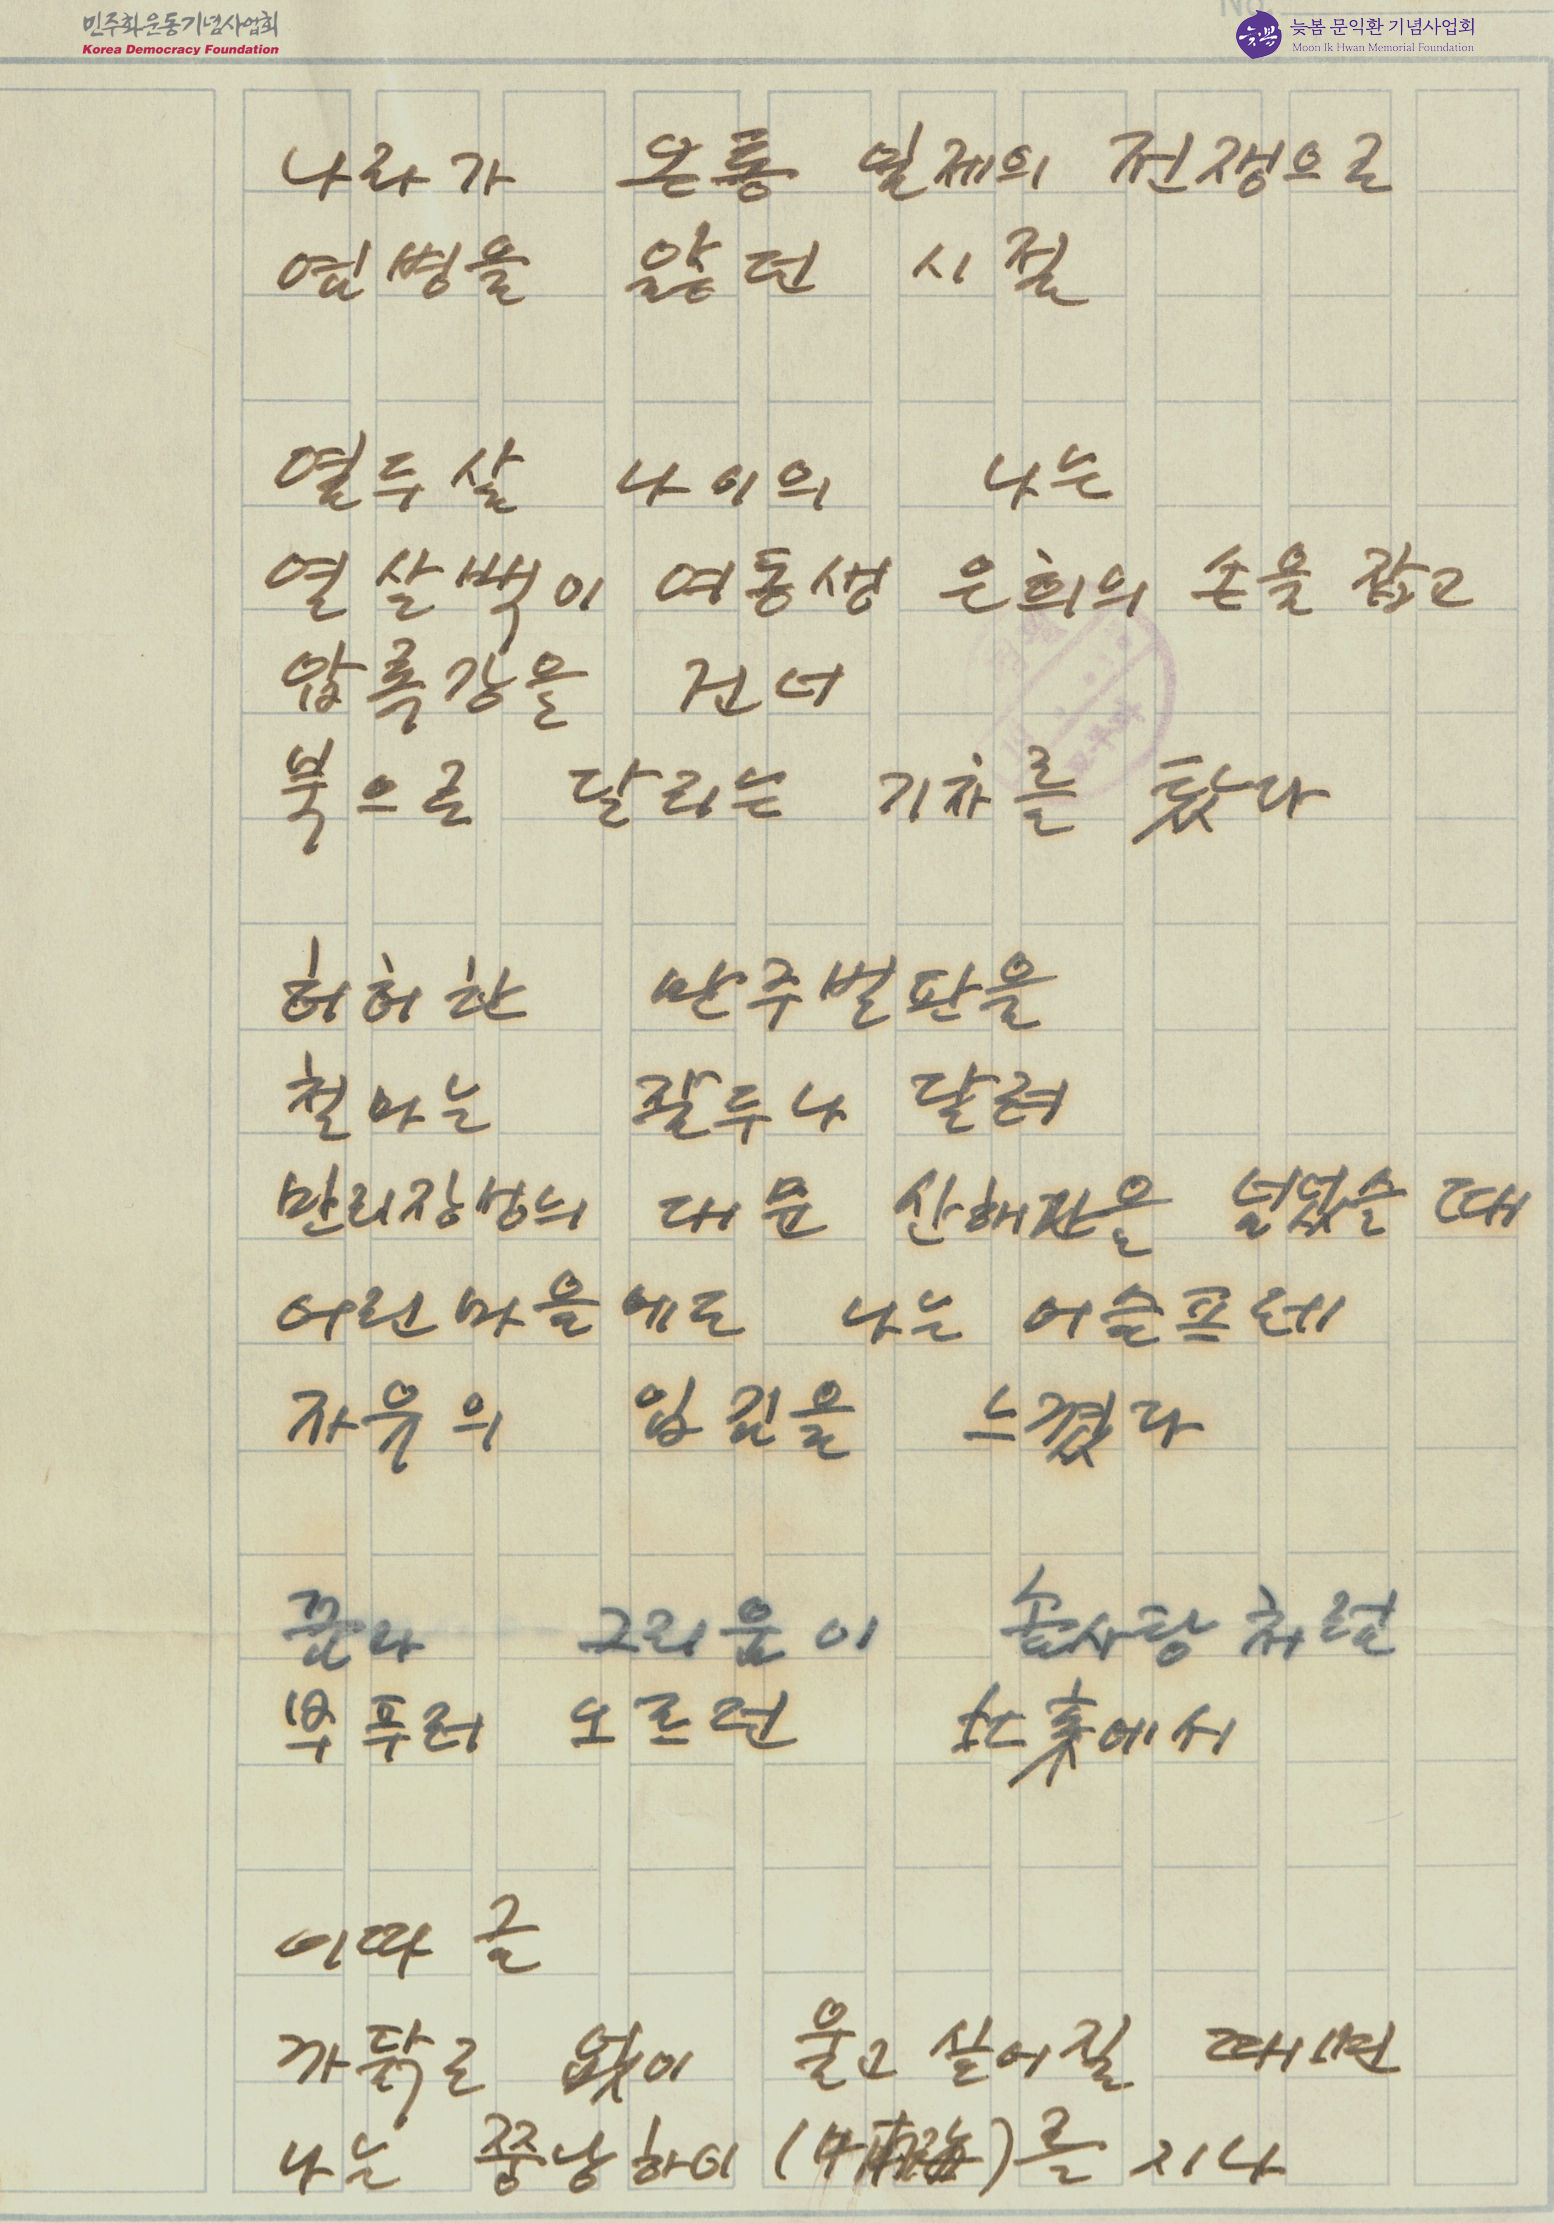 민주화운동기념사업회
Korea Democracy Foundation
늦봄 문익환 기념사업회
Moon Ik Hwan Memorial Foundation
No.
나라가 온통 일제의 전쟁으로
염병을 앓던 시절
열두살 나이의 나는
열살백이 여동생 은희의 손을 잡고
압록강을 건너
북으로 달리는 기차를 탔다
허허한 만주벌판을
철마는 잘두나 달려
만리장성의 대문 산해관을 넘었을 때
어린마을에도 나는 어슬프레
자유의 입김을 느꼈다
꿈과 그리움이 솜사탕처럼
부푸러 오르런 北京에서
이따금
까닭도 없이 울고 싶어질 때면
나는 쭝낭하이 (中南海)를 지나